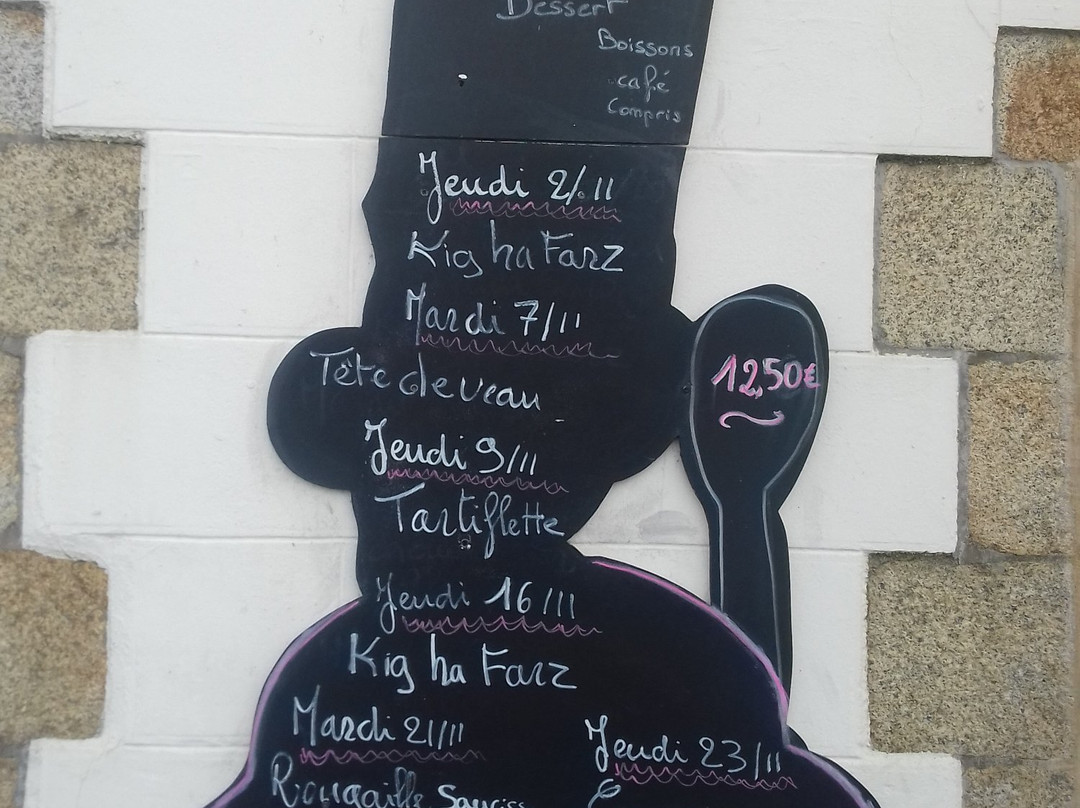 Dessert
Boissons
café
Compris
Jeudi 2/11
Kig ha Farz
Mardi 7/11
Tête de veau
12,50€
Jeudi 9/11
Tartiflette
Jeudi 16/11
Kig ha Farz
Mardi 21/11
Jeudi 23/11
Rougaille